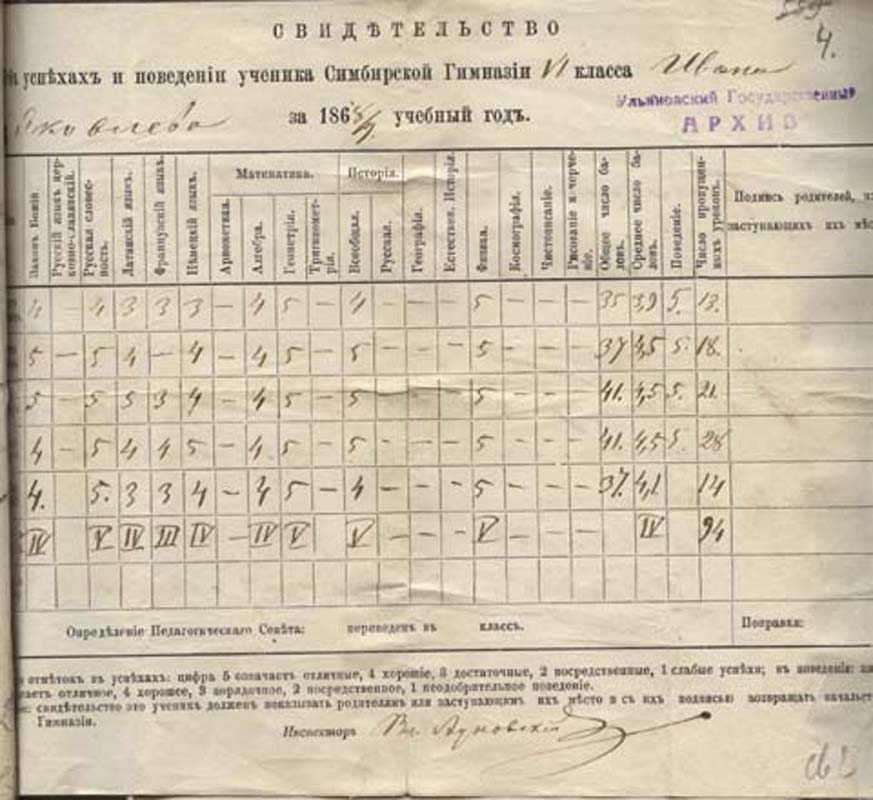 4.
СВИДѢТЕЛЬСТВО
успѣхахъ и поведеніи ученика Симбирской Гимназіи VI класса Ивана
Яковлева за 186 учебный годъ.
Ульяновский Государственный
АРХИВ
Законъ Божій Русскій языкъ церковно-славянскій. Русская словесность. Латинскій языкъ. Французскій языкъ. Нѣмецкій языкъ. Математика. Ариѳметика. Алгебра. Геометрія. Тригонометрія. Исторія. Всеобщая. Русская. Географія. Естествен. Исторія. Физика. Космографія. Чистописаніе. Рисованіе и черченіе. Общее число баловъ. Среднее число баловъ. Поведеніе. Число пропущенныхъ уроковъ. Подпись родителей,
заступающихъ ихъ
4 – 4 3 3 3 – 4 5 – 4 – – – 5 – – – 35 3,9 5. 13.
5 – 5 4 – 4 – 4 5 – 5 – – – 5 – – – 37 4,5 5. 18.
5 – 5 5 3 4 – 4 5 – 5 – – – 5 – – – 41. 4,5 5. 21.
4 – 5 4 4 5 – 4 5 – 5 – – – 5 – – – 41. 4,5 5. 28
4. 5. 3 3 4 – 4 5 – 4 – – – 5 – – – 37. 4,1 14
IV V IV III IV – IV V V – – – V – – – IV 94
Опредѣленіе Педагогическаго Совѣта: переведенъ въ классъ. Поправки:
отмѣтокъ въ успѣхахъ: цифра 5 означаетъ отличные, 4 хорошіе, 3 достаточные, 2 посредственные, 1 слабые успѣхи; въ поведеніи:
отличное, 4 хорошее, 3 порядочное, 2 посредственное, 1 неодобрительное поведеніе.
свидѣтельство это ученикъ долженъ показывать родителямъ или заступающимъ ихъ мѣсто и съ ихъ подписью возвращать
Гимназіи.
Инспекторъ Вл. Ауновскій